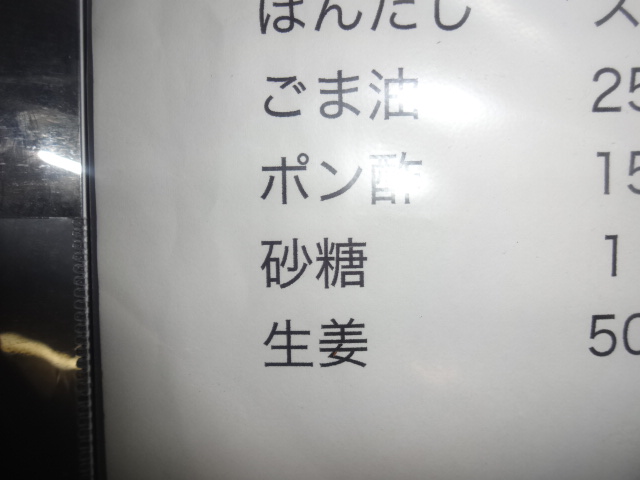 ほんだし
ごま油 25
ポン酢 15
砂糖 1
生姜 50